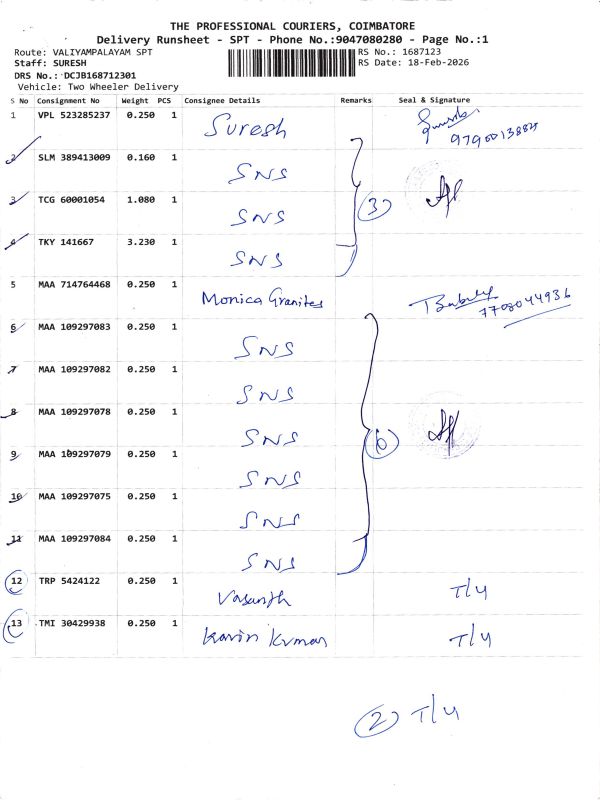 THE PROFESSIONAL COURIERS, COIMBATORE
Delivery Runsheet - SPT - Phone No.:9047080280 - Page No.:1
Route: VALIYAMPALAYAM SPT RS No.: 1687123
Staff: SURESH RS Date: 18-Feb-2026
DRS No.: DCJB168712301
Vehicle: Two Wheeler Delivery
S No Consignment No Weight PCS Consignee Details Remarks Seal & Signature
1 VPL 523285237 0.250 1 Suresh
2 SLM 389413009 0.160 1 SNS
3 TCG 60001054 1.080 1 SNS 3
4 TKY 141667 3.230 1 SNS
5 MAA 714764468 0.250 1 Monica Granites 7708044936
6 MAA 109297083 0.250 1 SNS
7 MAA 109297082 0.250 1 SNS
8 MAA 109297078 0.250 1 SNS 6
9 MAA 109297079 0.250 1 SNS
10 MAA 109297075 0.250 1 SNS
11 MAA 109297084 0.250 1 SNS
12 TRP 5424122 0.250 1 Vasanth T/4
13 TMI 30429938 0.250 1 Kavin Kumar T/4
2 T/4